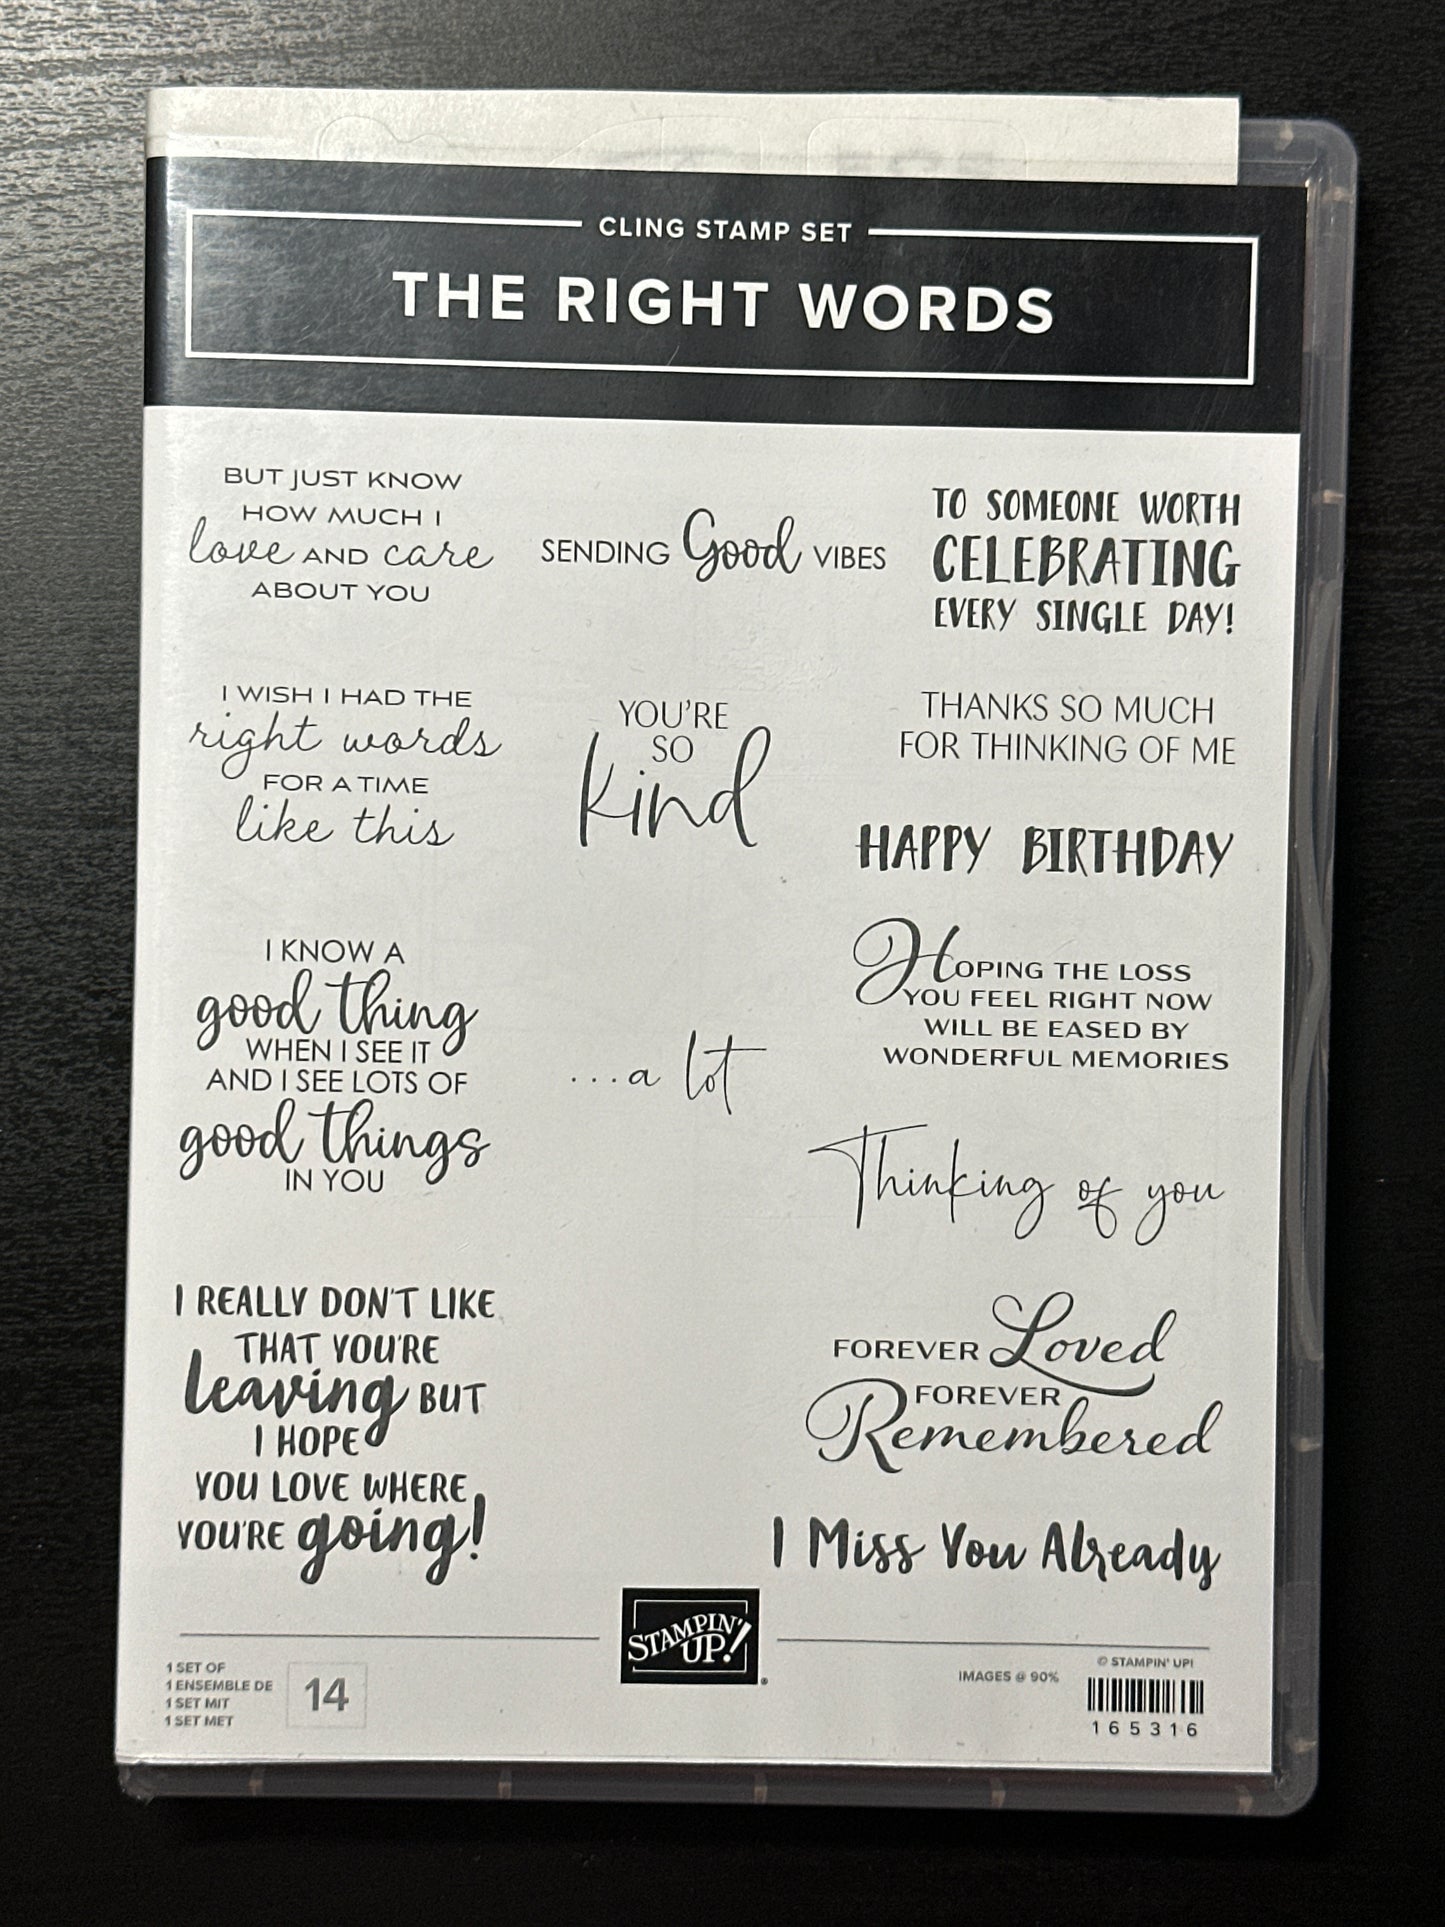 CLING STAMP SET
THE RIGHT WORDS
BUT JUST KNOW
HOW MUCH I
love AND care
ABOUT YOU
SENDING Good VIBES
TO SOMEONE WORTH
CELEBRATING
EVERY SINGLE DAY!
I WISH I HAD THE
right words
FOR A TIME
like this
YOU'RE
SO
kind
THANKS SO MUCH
FOR THINKING OF ME
HAPPY BIRTHDAY
I KNOW A
good thing
WHEN I SEE IT
AND I SEE LOTS OF
good things
IN YOU
...a lot
HOPING THE LOSS
YOU FEEL RIGHT NOW
WILL BE EASED BY
WONDERFUL MEMORIES
Thinking of you
I REALLY DON'T LIKE
THAT YOU'RE
leaving BUT
I HOPE
YOU LOVE WHERE
YOU'RE going!
FOREVER Loved
FOREVER
Remembered
I Miss You Already
STAMPIN'
UP!®
1 SET OF
1 ENSEMBLE DE
1 SET MIT
1 SET MET
14
IMAGES @ 90%
© STAMPIN' UP!
165316